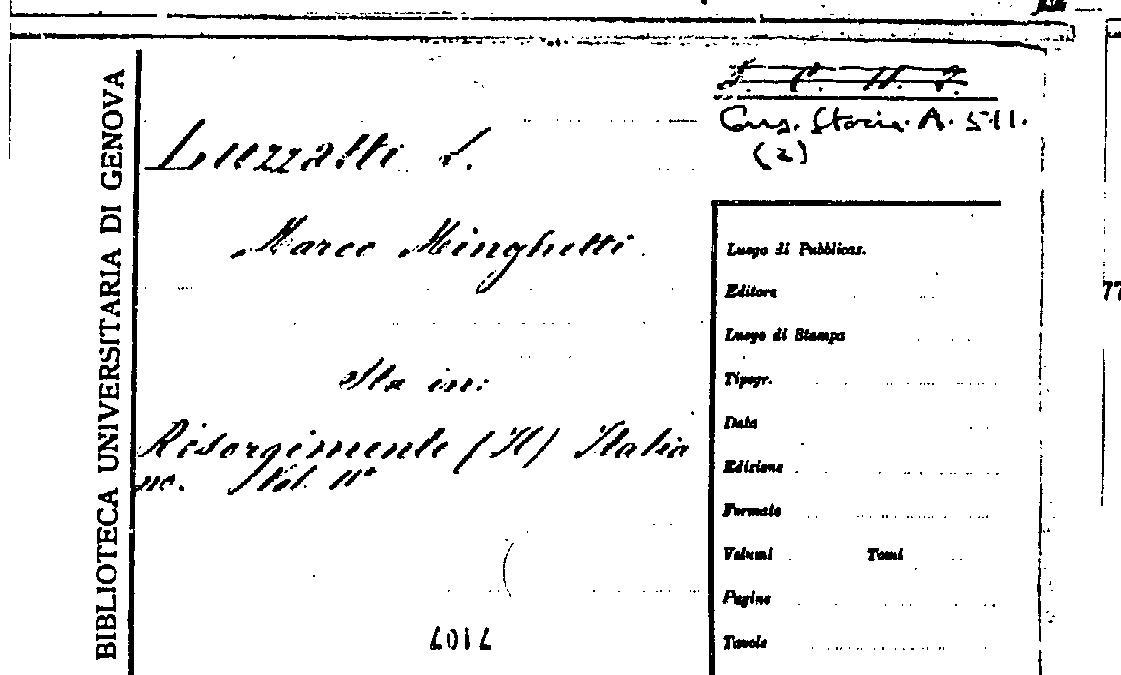 BIBLIOTECA UNIVERSITARIA DI GENOVA
Luzzatti L.
Marco Minghetti
Sta in:
Risorgimento (Il) Italia
no. Vol. IIº
Cons. Storia. A. 511.
(2)
Luogo di Pubblicas.
Editore
Luogo di Stampa
Tipogr.
Data
Edizione
Formato
Volumi Tomi
Pagine
Tavole
77